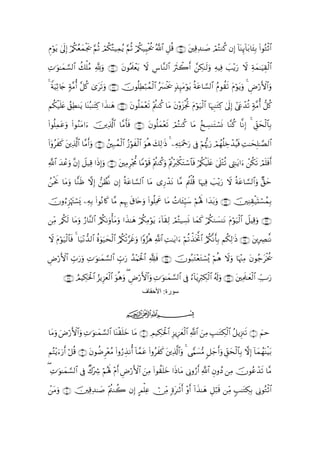 ٱئۡتُواْ بِـَٔابَآئِنَآ إِن كُنتُمۡ صَٰدِقِينَ ۝ قُلِ ٱللَّهُ يُحۡيِيكُمۡ ثُمَّ يُمِيتُكُمۡ ثُمَّ يَجۡمَعُكُمۡ إِلَىٰ يَوۡمِ
ٱلۡقِيَٰمَةِ لَا رَيۡبَ فِيهِ وَلَٰكِنَّ أَكۡثَرَ ٱلنَّاسِ لَا يَعۡلَمُونَ ۝ وَلِلَّهِ مُلۡكُ ٱلسَّمَٰوَٰتِ
وَٱلۡأَرۡضِۚ وَيَوۡمَ تَقُومُ ٱلسَّاعَةُ يَوۡمَئِذٖ يَخۡسَرُ ٱلۡمُبۡطِلُونَ ۝ وَتَرَىٰ كُلَّ أُمَّةٖ جَاثِيَةٗۚ
كُلُّ أُمَّةٖ تُدۡعَىٰٓ إِلَىٰ كِتَٰبِهَا ٱلۡيَوۡمَ تُجۡزَوۡنَ مَا كُنتُمۡ تَعۡمَلُونَ ۝ هَٰذَا كِتَٰبُنَا يَنطِقُ عَلَيۡكُم
بِٱلۡحَقِّۚ إِنَّا كُنَّا نَسۡتَنسِخُ مَا كُنتُمۡ تَعۡمَلُونَ ۝ فَأَمَّا ٱلَّذِينَ ءَامَنُواْ وَعَمِلُواْ
ٱلصَّٰلِحَٰتِ فَيُدۡخِلُهُمۡ رَبُّهُمۡ فِي رَحۡمَتِهِۦۚ ذَٰلِكَ هُوَ ٱلۡفَوۡزُ ٱلۡمُبِينُ ۝ وَأَمَّا ٱلَّذِينَ كَفَرُوٓاْ
أَفَلَمۡ تَكُنۡ ءَايَٰتِي تُتۡلَىٰ عَلَيۡكُمۡ فَٱسۡتَكۡبَرۡتُمۡ وَكُنتُمۡ قَوۡمٗا مُّجۡرِمِينَ ۝ وَإِذَا قِيلَ إِنَّ وَعۡدَ ٱللَّهِ
حَقّٞ وَٱلسَّاعَةُ لَا رَيۡبَ فِيهَا قُلۡتُم مَّا نَدۡرِي مَا ٱلسَّاعَةُ إِن نَّظُنُّ إِلَّا ظَنّٗا وَمَا نَحۡنُ
بِمُسۡتَيۡقِنِينَ ۝ وَبَدَا لَهُمۡ سَيِّـَٔاتُ مَا عَمِلُواْ وَحَاقَ بِهِم مَّا كَانُواْ بِهِۦ يَسۡتَهۡزِءُونَ
۝ وَقِيلَ ٱلۡيَوۡمَ نَنسَىٰكُمۡ كَمَا نَسِيتُمۡ لِقَآءَ يَوۡمِكُمۡ هَٰذَا وَمَأۡوَىٰكُمُ ٱلنَّارُ وَمَا لَكُم مِّن
نَّٰصِرِينَ ۝ ذَٰلِكُم بِأَنَّكُمُ ٱتَّخَذۡتُمۡ ءَايَٰتِ ٱللَّهِ هُزُوٗا وَغَرَّتۡكُمُ ٱلۡحَيَوٰةُ ٱلدُّنۡيَاۚ فَٱلۡيَوۡمَ لَا
يُخۡرَجُونَ مِنۡهَا وَلَا هُمۡ يُسۡتَعۡتَبُونَ ۝ فَلِلَّهِ ٱلۡحَمۡدُ رَبِّ ٱلسَّمَٰوَٰتِ وَرَبِّ ٱلۡأَرۡضِ
رَبِّ ٱلۡعَٰلَمِينَ ۝ وَلَهُ ٱلۡكِبۡرِيَآءُ فِي ٱلسَّمَٰوَٰتِ وَٱلۡأَرۡضِۖ وَهُوَ ٱلۡعَزِيزُ ٱلۡحَكِيمُ ۝
سورة: الأحقاف
بِسۡمِ ٱللَّهِ ٱلرَّحۡمَٰنِ ٱلرَّحِيمِ
حمٓ ۝ تَنزِيلُ ٱلۡكِتَٰبِ مِنَ ٱللَّهِ ٱلۡعَزِيزِ ٱلۡحَكِيمِ ۝ مَا خَلَقۡنَا ٱلسَّمَٰوَٰتِ وَٱلۡأَرۡضَ وَمَا
بَيۡنَهُمَآ إِلَّا بِٱلۡحَقِّ وَأَجَلٖ مُّسَمّٗىۚ وَٱلَّذِينَ كَفَرُواْ عَمَّآ أُنذِرُواْ مُعۡرِضُونَ ۝ قُلۡ أَرَءَيۡتُم
مَّا تَدۡعُونَ مِن دُونِ ٱللَّهِ أَرُونِي مَاذَا خَلَقُواْ مِنَ ٱلۡأَرۡضِ أَمۡ لَهُمۡ شِرۡكٞ فِي ٱلسَّمَٰوَٰتِۖ
ٱئۡتُونِي بِكِتَٰبٖ مِّن قَبۡلِ هَٰذَآ أَوۡ أَثَٰرَةٖ مِّنۡ عِلۡمٍ إِن كُنتُمۡ صَٰدِقِينَ ۝ وَمَنۡ